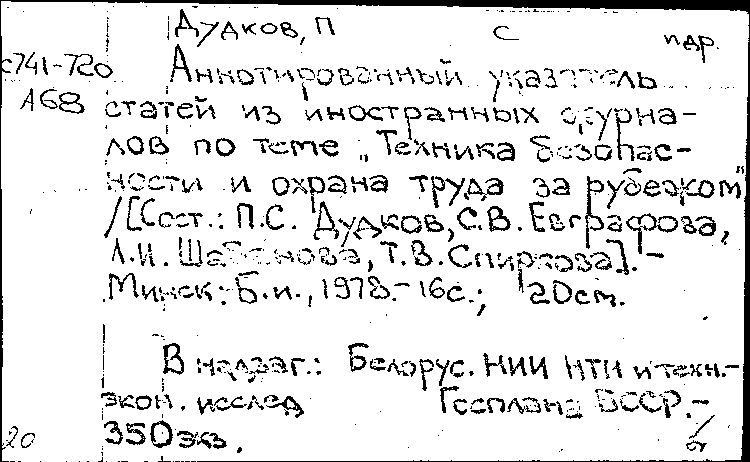 Дудков, П С пдр.
с741-720 Аннотированный указатель
А68 статей из иностранных журна-
лов по теме „Техника безопас-
ности и охрана труда за рубежом"
/[Сост.: П.С. Дудков, С.В. Евграфова,
Л.И. Шабанова, Т.В. Спиркова]. -
Минск: Б.и., 1978.- 16с.; 20см.
В надзаг.: Белорус. НИИ НТИ и техн.-
экон. исслед Госплана БССР.-
20 350 экз.